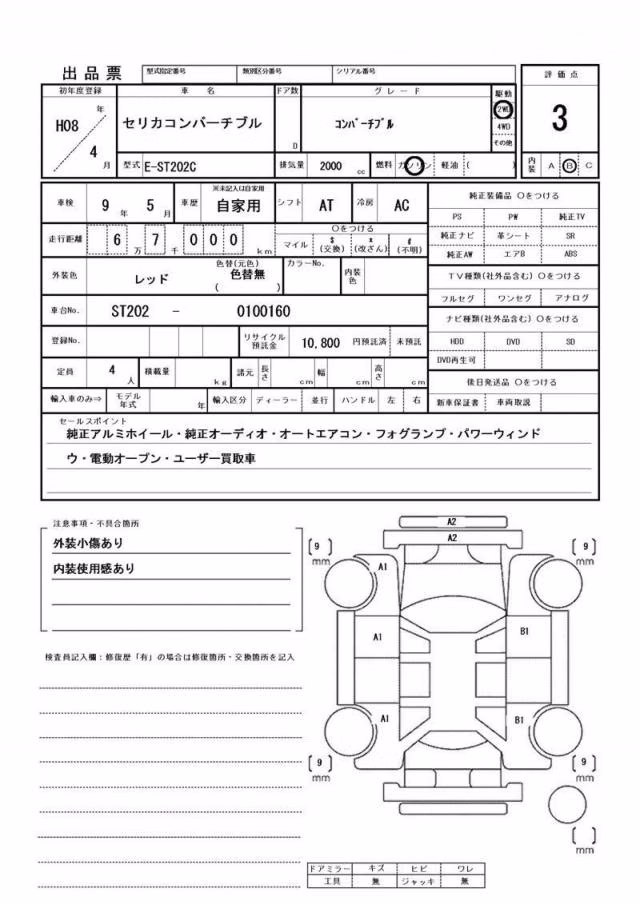 出品票
型式指定番号 類別区分番号 シリアル番号
評価点
3
初年度登録 車名 ドア数 グレード 駆動
H08 年 4 月
セリカコンバーチブル D コンバーチブル
2WD
4WD
その他
型式 E-ST202C 排気量 2000 cc 燃料 ガソリン 軽油 ( )
内装 A B C
車検 9 年 5 月 車歴 ※未記入は自家用 自家用 シフト AT 冷房 AC
純正装備品 〇をつける
PS PW 純正TV
純正ナビ 革シート SR
純正AW エアB ABS
走行距離 6 万 7 千 0 0 0 km
〇をつける
マイル $ (交換) x (改ざん) # (不明)
外装色 レッド 色替(元色) 色替無 ( ) カラーNo. 内装色
TV種類(社外品含む) 〇をつける
フルセグ ワンセグ アナログ
車台No. ST202 - 0100160
ナビ種類(社外品含む) 〇をつける
HDD DVD SD
DVD再生可
登録No. リサイクル預託金 10,800 円預託済 未預託
定員 4 人 積載量 kg 諸元 長さ cm 幅 cm 高さ cm
後日発送品 〇をつける
新車保証書 車両取説
輸入車のみ⇒ モデル年式 年 輸入区分 ディーラー 並行 ハンドル 左 右
セールスポイント
純正アルミホイール・純正オーディオ・オートエアコン・フォグランプ・パワーウィンド
ウ・電動オープン・ユーザー買取車
注意事項・不具合箇所
外装小傷あり
内装使用感あり
検査員記入欄：修復歴「有」の場合は修復箇所・交換箇所を記入
A2
A2
[9] mm A1 [9] mm
A1 B1
A1 B1
[9] mm [9] mm
[ ] mm
ドアミラー キズ ヒビ ワレ
工具 無 ジャッキ 無